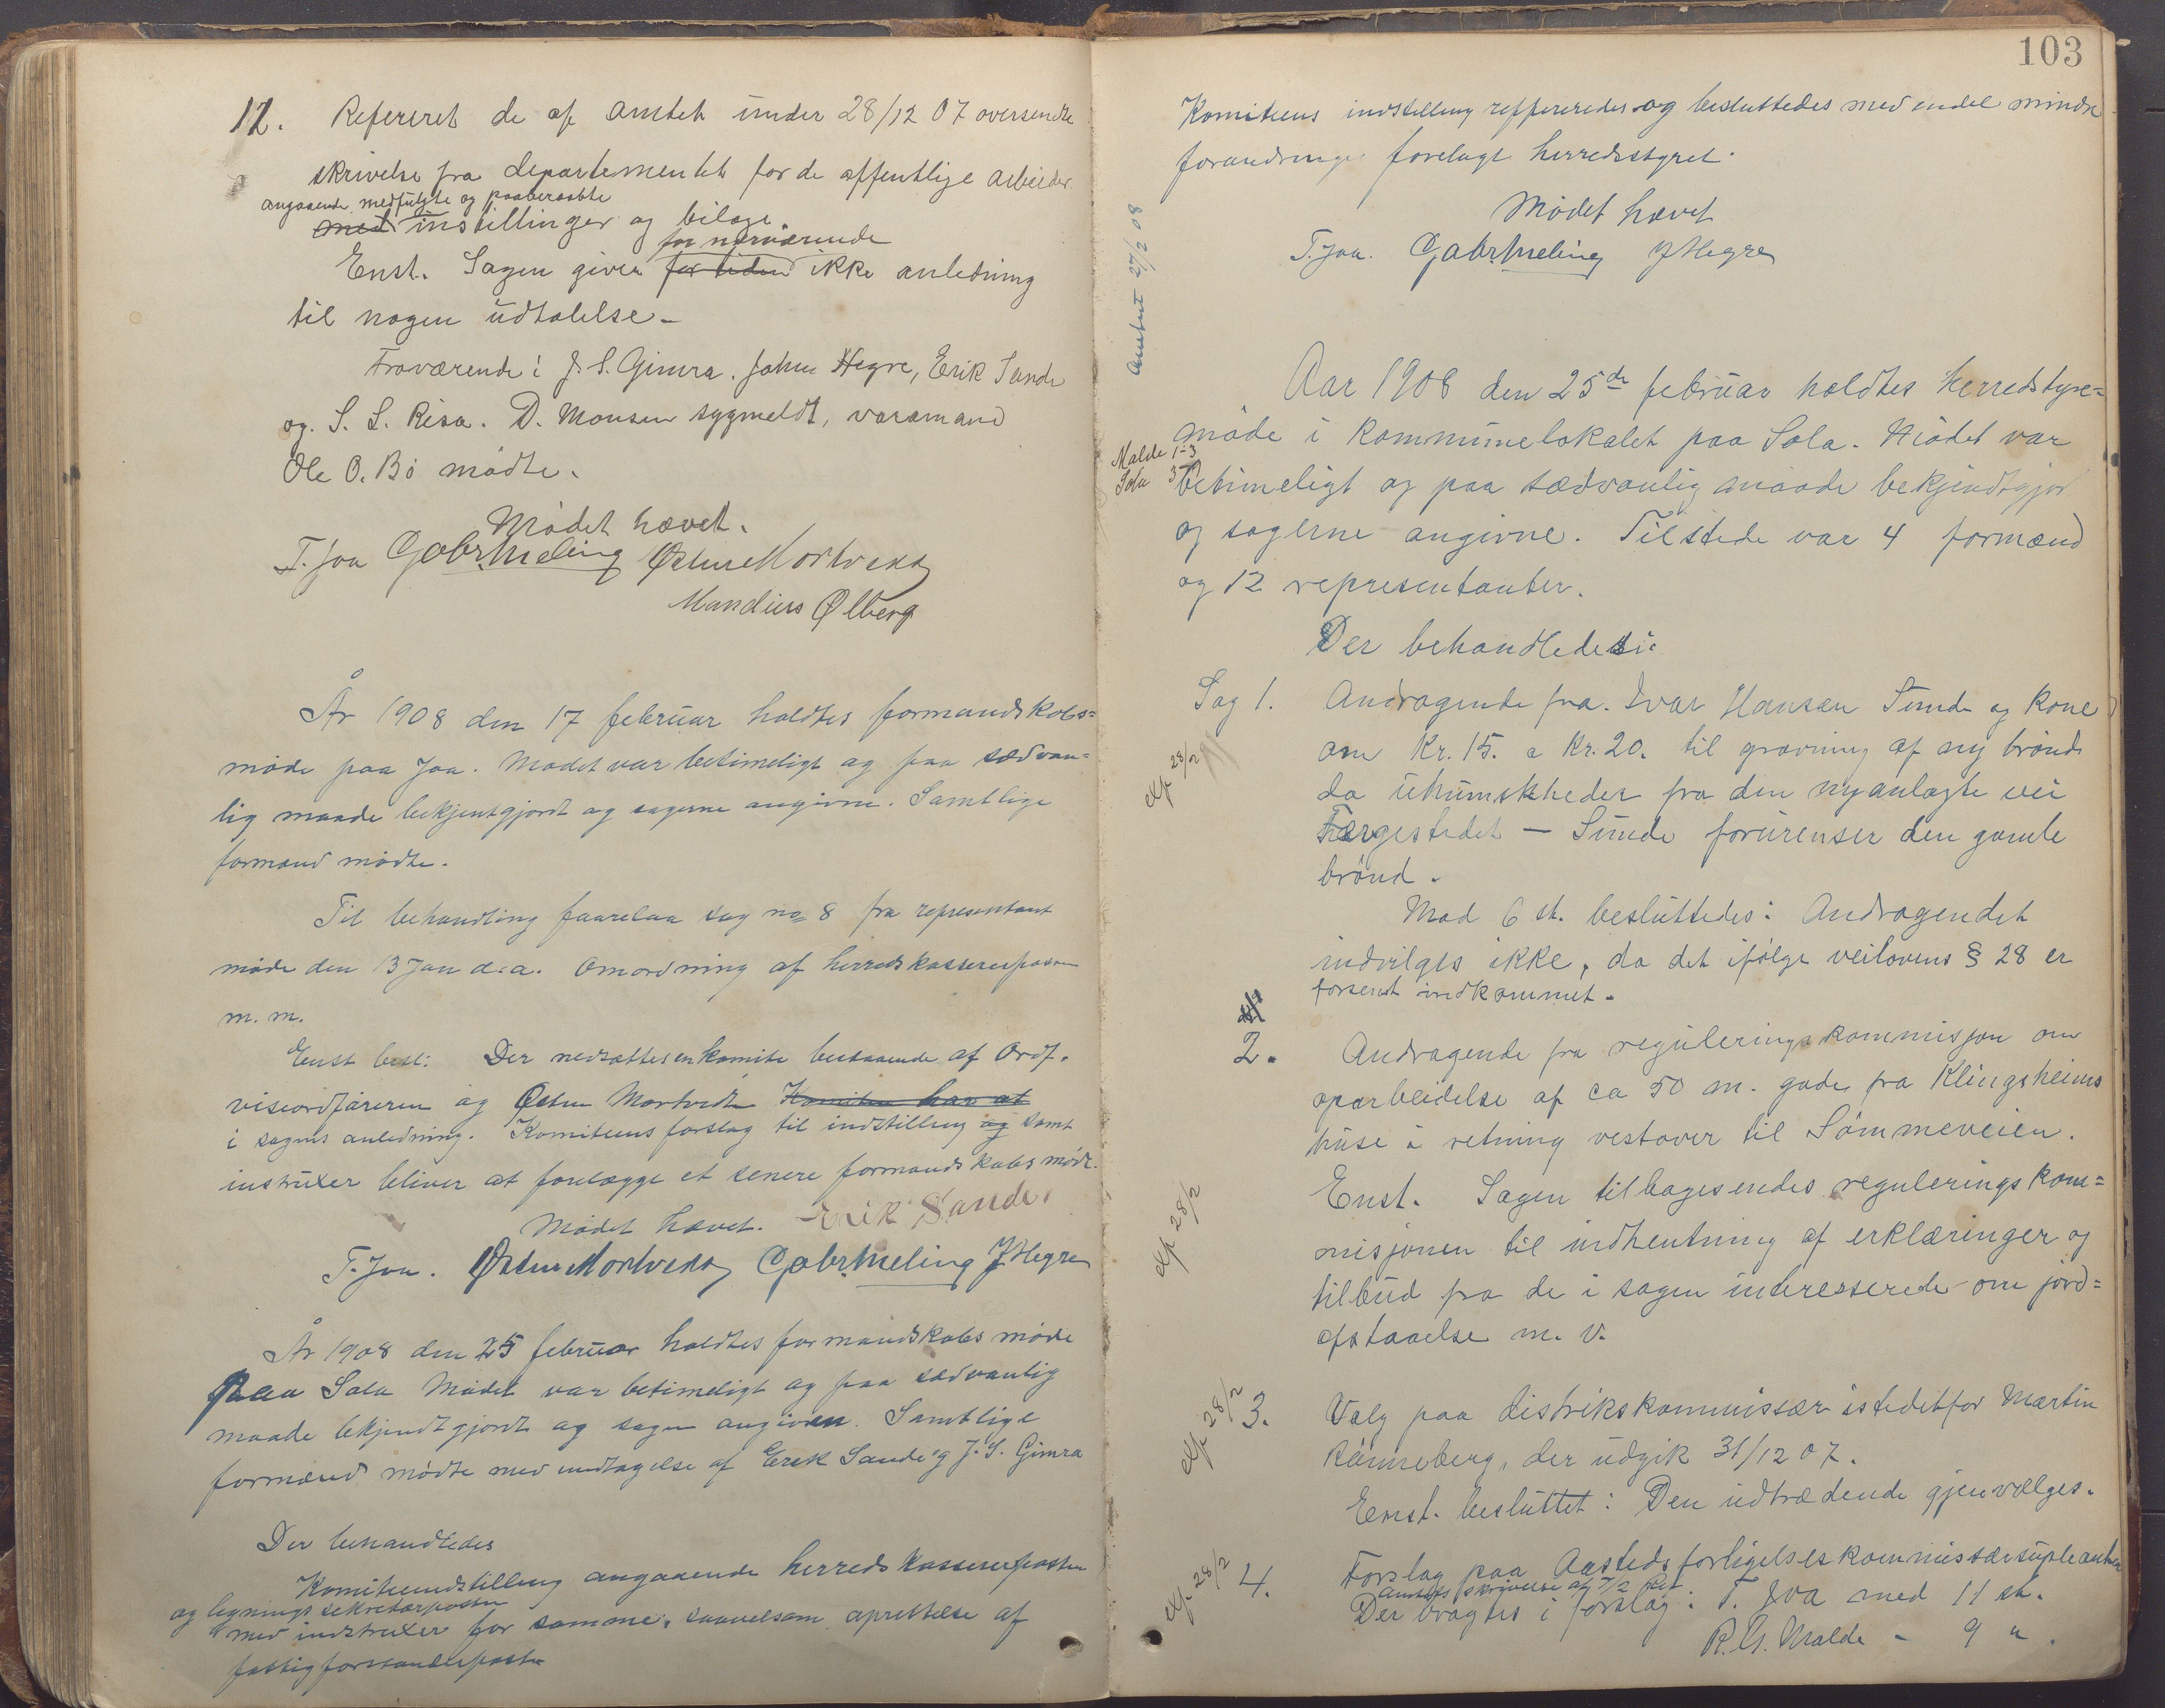 12. Refereret de af amtet under 28/12 07 oversendte
skrivelse fra departementet for de offentlige arbeider
angaaende medfulgte og paaberaabte
med instillinger og bilage.
for nærværende
Enst. Sagen giver for tiden ikke anledning
til nogen udtalelse.
Fraværende: J. S. Gimra. John Hegre, Erik Sande
og S. L. Risa. D. Monsen sygmeldt, varamand
Ole O. Bö mødte.
Mödet hævet.
T. Joa Gabr. Meling Østen Mortvedt
Mandius Ølberg
År 1908 den 17 februar holdtes formandskabs=
möde paa Joa. Mødet var betimeligt og paa sædvan=
lig maade bekjentgjordt og sagerne angivne. Samtlige
formænd mödte.
Til behandling faarelaa sag no 8 fra representant
möde den 13 Jan d. a. Omordning af herredskassererposten
m. m.
Enst besl: Der nedsættes en komite bestaaende af Ordf.
viseordføreren og Østen Mortvedt Komiteen har at
i sagens anledning. Komiteens forslag til indstilling og samt
instruxer bliver at forelægge et senere formandskabsmöde.
Mödet hævet. Erik Sande.
T. Joa. Østen Mortvedt Gabr. Meling J Hegre
År 1908 den 25 februar holdtes formandskabs möde
paa Sola Mödet var betimeligt og paa sædvanlig
maade bekjendtgjordt og sagen angiven. Samtlige
formænd mödte med undtagelse af Erik Sande og J. S. Gimra
Der behandledes
Komiteeindstilling angaaende herredskassererposten
og lignings sekretærposten
med indstruxer for samme, saavelsom oprettelse af
fattigforstanderposten
103
Komiteens indstilling reffereredes og besluttedes med endel mindre
forandringer forelagt herredsstyret.
Mödet hævet
T. Joa. Gabr. Meling J Hegre
Amtet 27/2 08
Aar 1908 den 25de februar holdtes herredstyre=
möde i kommunelokalet paa Sola. Mödet var
Malde 1-3
Sola 3
betimeligt og paa sædvanlig maade bekjendtgjor
og sagerne angivne. Tilstede var 4 formænd
og 12 representanter.
Der behandledes:
Sag 1. Andragende fra Ivar Hansen Sunde og kone
exp. 28/2
om Kr. 15. a Kr. 20. til gravning af ny brönd
da uhumskheder fra den nyanlagte vei
Færgestedet — Sunde forurenser den gamle
brönd.
Mod 6 st. besluttedes: Andragendet
indvilges ikke, da det ifölge veilovens § 28 er
forsent indkommet.
2. Andragende fra reguleringskommisjon om
oparbeidelse af ca 50 m. gade fra Klingsheims
huse i retning vestover til Sömmeveien.
exp 28/2
Enst. Sagen tilbagesendes reguleringskom=
misjonen til indhentning af erklæringer og
tilbud fra de i sagen interesserede om jord=
afstaaelse m. v.
exp. 28/2
3. Valg paa distrikskommissær istedetfor Martin
Rönneberg, der udgik 31/12 07.
Enst. besluttet: Den udtrædende gjenvælges.
exp. 28/2
4. Forslag paa Aastedsforligelseskommissærsupleanter
Amtets skrivelse af 7/2 Ref.
Der bragtes i forslag: T. Joa med 11 st.
R. U. Malde - 9 "